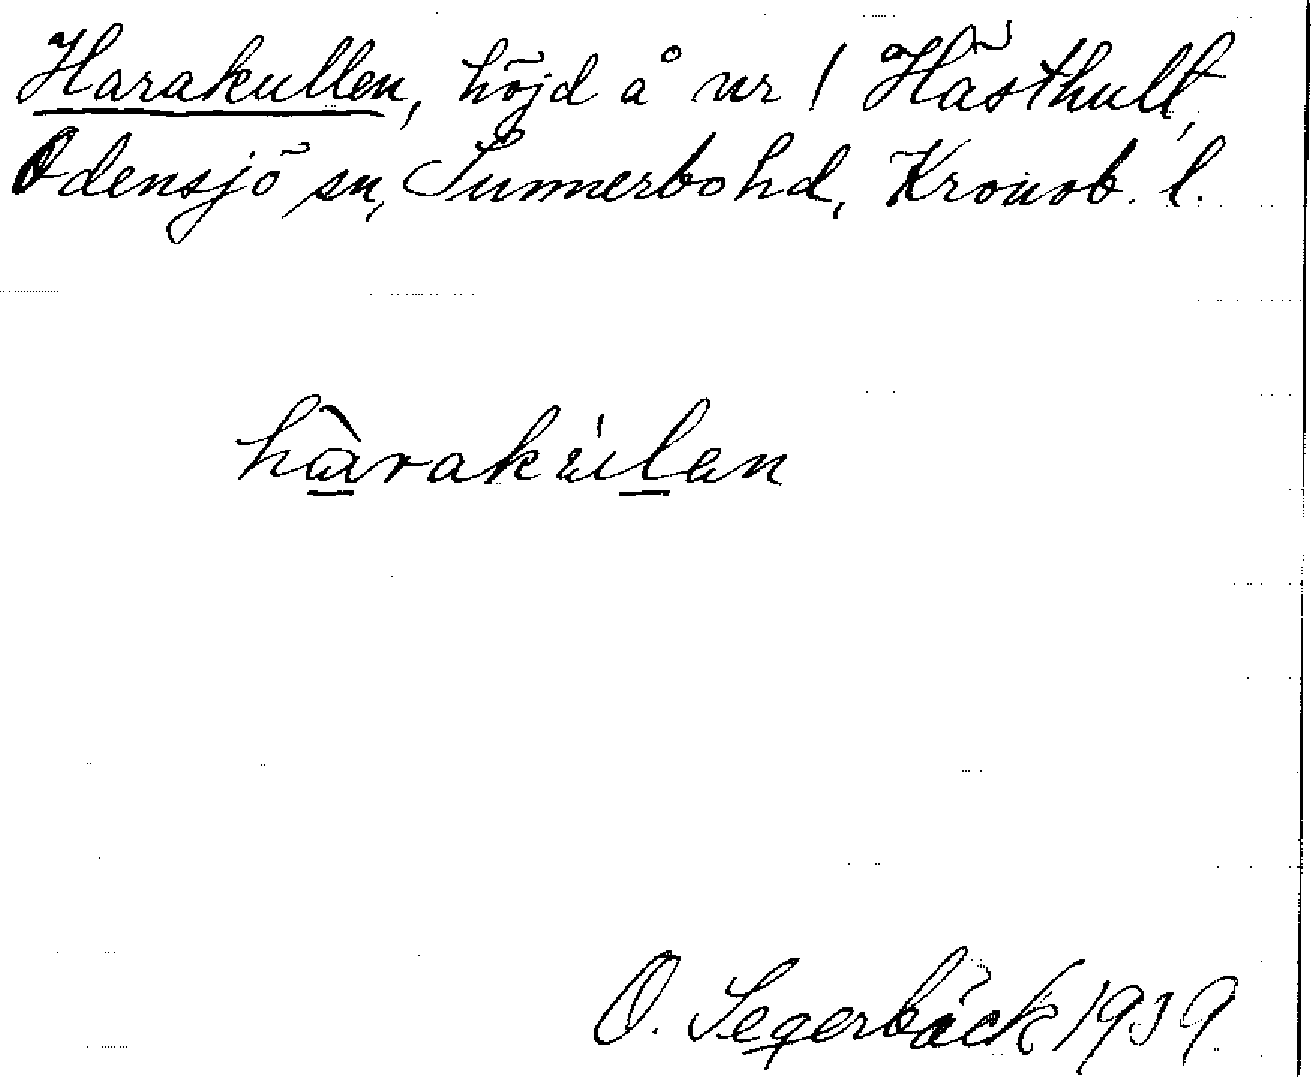 Harakullen, höjd å nr 1 Hästhult,
Odensjö sn, Sunnerbo hd, Kronob. l.
hârakúlen
O. Segerbäck 1939